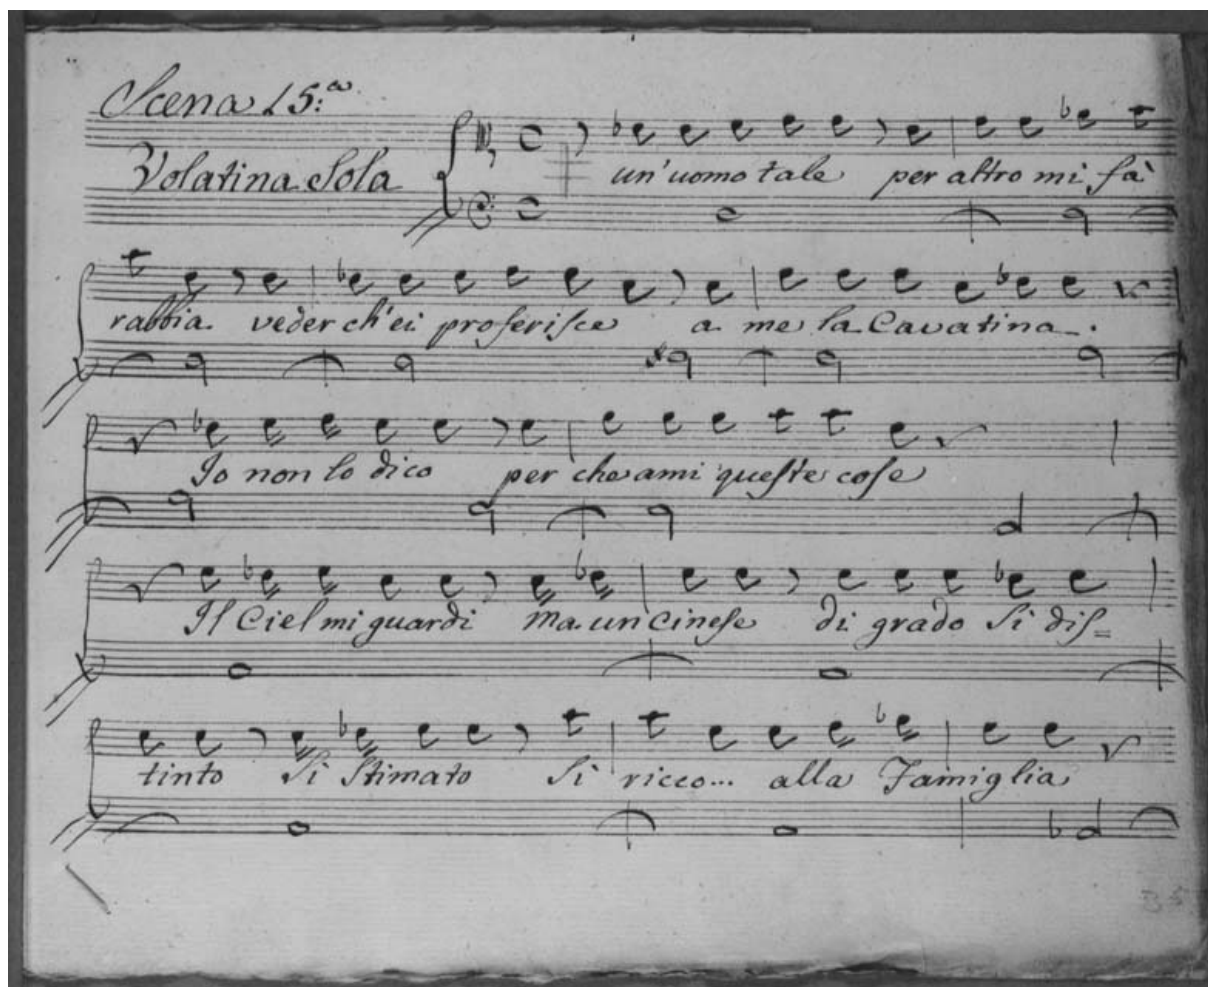 Scena 15:a
Volatina Sola
un'uomo tale per altro mi fà
rabbia. veder ch'ei proferisce a me la Cavatina.
Io non lo dico per che ami queste cose
Il Ciel mi guardi ma un cinese di grado Si dis=
tinto Si Stimato Si ricco... alla Famiglia